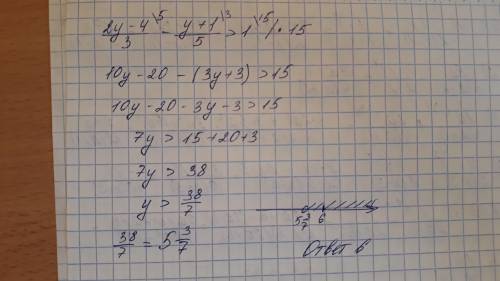 (2y-4)/3 \5 - (y+1)/5 \3 > 1 \15 /· 15
10y - 20 - (3y+3) > 15
10y - 20 - 3y - 3 > 15
7y > 15 + 20 + 3
7y > 38
y > 38/7
5 3/7 6
38/7 = 5 3/7
Ответ 6